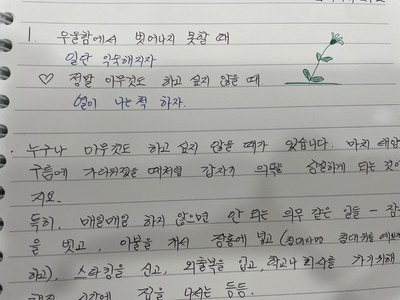 1. 우울함에서 벗어나지 못할 때
일단 익숙해지자
♡ 정말 아무것도 하고 싶지 않을 때
신이 나는 척 하자.
. 누구나 아무것도 하고 싶지 않을 때가 있습니다. 마치 태양
구름에 가려졌을 때처럼 갑자기 의욕을 상실하게 되는 것이
지요.
특히, 매일매일 하지 않으면 안 되는 의무 같은 일들 - 잠
을 벗고, 이불을 개서 장롱에 넣고 (침대라면 침대 위를
하고), 스타킹을 신고, 외출복을 입고, 학교나 회사를 가기 위해
시간에 집을 나서는 등등.